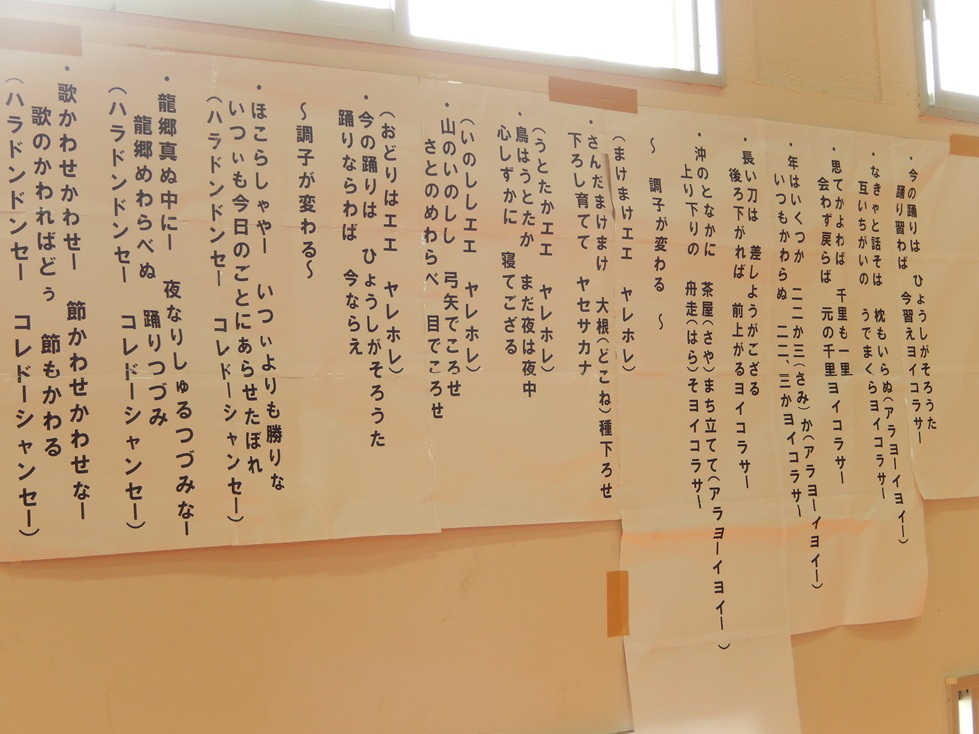 ・今の踊りは　ひょうしがそろうた
踊り習わば　今習えヨイコラサー
・なきゃと話そは　枕もいらぬ(アラヨーイヨイー)
互いちがいの　うでまくらヨイコラサー
・思てかよわば　千里も一里
会わず戻らば　元の千里ヨイコラサー
・年はいくつか　二二か三(さみ)か(アラヨーイヨイー)
いつもかわらぬ　二二、三かヨイコラサー
・長い刀は　差しようがござる
後ろ下がれば　前上がるヨイコラサー
・沖のとなかに　茶屋(さや)まち立てて(アラヨーイヨイー)
上り下りの　舟走(はら)そヨイコラサー
～　調子が変わる　～
(まけまけエエ　ヤレホレ)
・さんだまけまけ　大根(どこね)種下ろせ
下ろし育てて　ヤセサカナ
(うとたかエエ　ヤレホレ)
・鳥はうとたか　まだ夜は夜中
心しずかに　寝てござる
(いのししエエ　ヤレホレ)
・山のいのしし　弓矢でころせ
さとのめわらべ　目でころせ
(おどりはエエ　ヤレホレ)
・今の踊りは　ひょうしがそろうた
踊りならわば　今ならえ
～調子が変わる～
・ほこらしゃやー　いつぃよりも勝りな
いつぃも今日のごとにあらせたぼれ
(ハラドンドンセー　コレドーシャンセー)
・龍郷真ぬ中にー　夜なりしゅるつづみなー
龍郷めわらべぬ　踊りつづみ
(ハラドンドンセー　コレドーシャンセー)
・歌かわせかわせー　節かわせかわせなー
歌のかわればどぅ　節もかわる
(ハラドンドンセー　コレドーシャンセー)